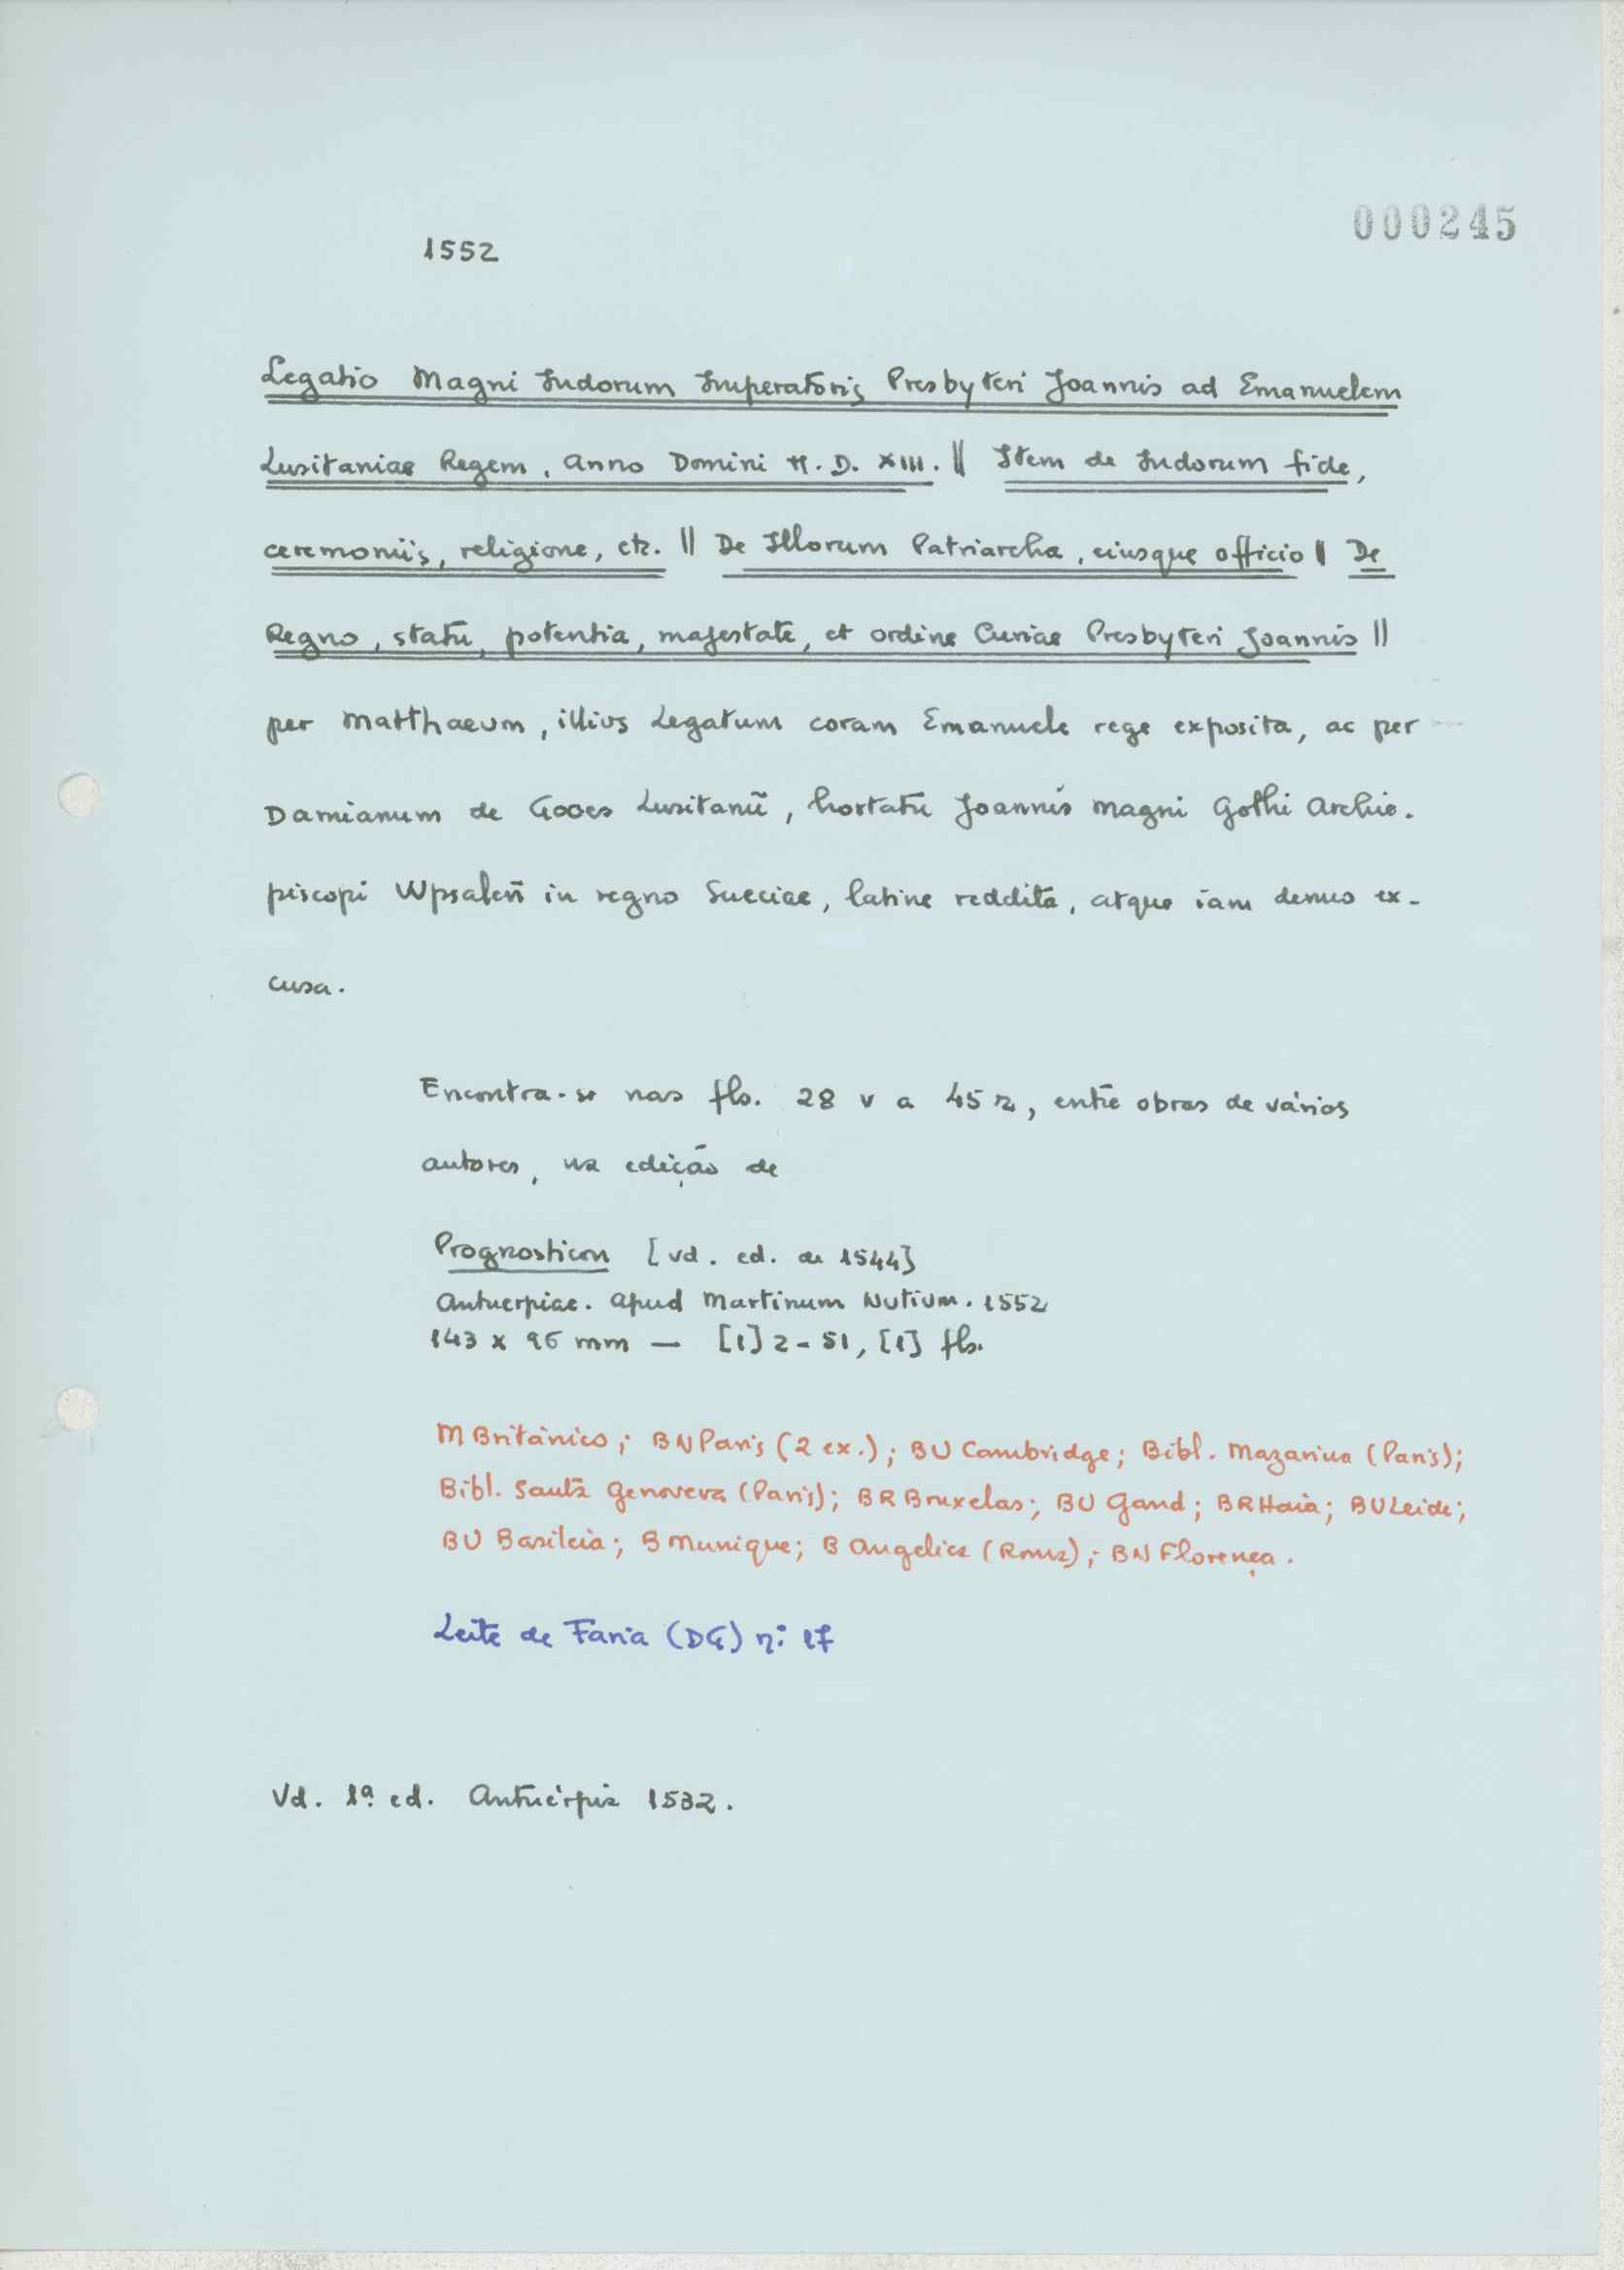 000245
1552
Legatio Magni Indorum Imperatoris Presbyteri Joannis ad Emanuelem
Lusitaniae Regem, Anno Domini M. D. XIII. || Item de Indorum fide,
ceremoniis, religione, etc. || De Illorum Patriarcha, eiusque officio || De
Regno, statu, potentia, majestate, et ordine Curiae Presbyteri Joannis ||
per Matthaeum, illius Legatum coram Emanuele rege exposita, ac per
Damianum de Gooes Lusitanũ, hortatu Joannis Magni Gothi Archie-
piscopi Wpsaleñ in regno Sueciae, latine reddita, atque iam denuo ex-
cusa.
Encontra-se nas fls. 28 v a 45 r, entre obras de vários
autores, na edição de
Prognosticon [vd. ed. de 1544]
Antuerpiae. Apud Martinum Nutium. 1552
143 x 96 mm — [1] 2-51, [1] fls.
M Britânico; BN Paris (2 ex.); BU Cambridge; Bibl. Mazarina (Paris);
Bibl. Santa Genoveva (Paris); BR Bruxelas; BU Gand; BR Haia; BU Leide;
BU Basileia; B Munique; B Angelica (Roma); BN Florença.
Leite de Faria (DG) n.º 17
Vd. 1ª ed. Antuérpia 1532.